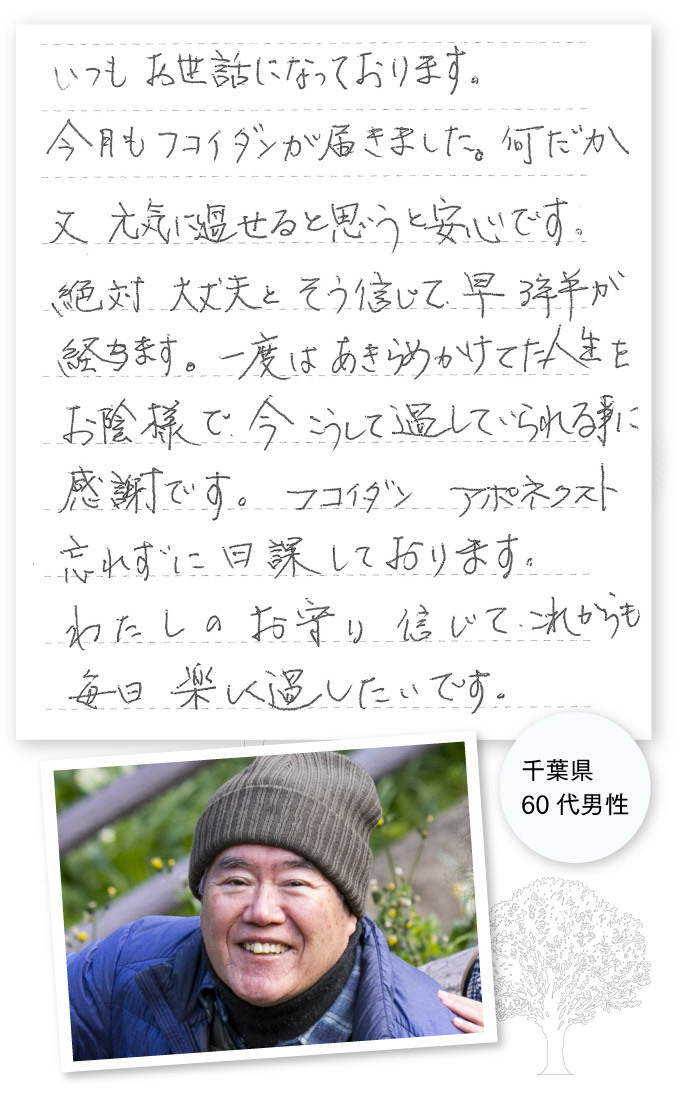 いつも お世話になっております。
今月もフコイダンが届きました。何だか
又 元気に過せると思うと安心です。
絶対 大丈夫と そう信じて 早 3年半が
経ちます。一度は あきらめかけてた人生を
お陰様で 今 こうして過していられる事に
感謝です。 フコイダン アポネクスト
忘れずに 日課しております。
わたしの お守り 信じて これからも
毎日 楽しく過したいです。
千葉県
60代男性